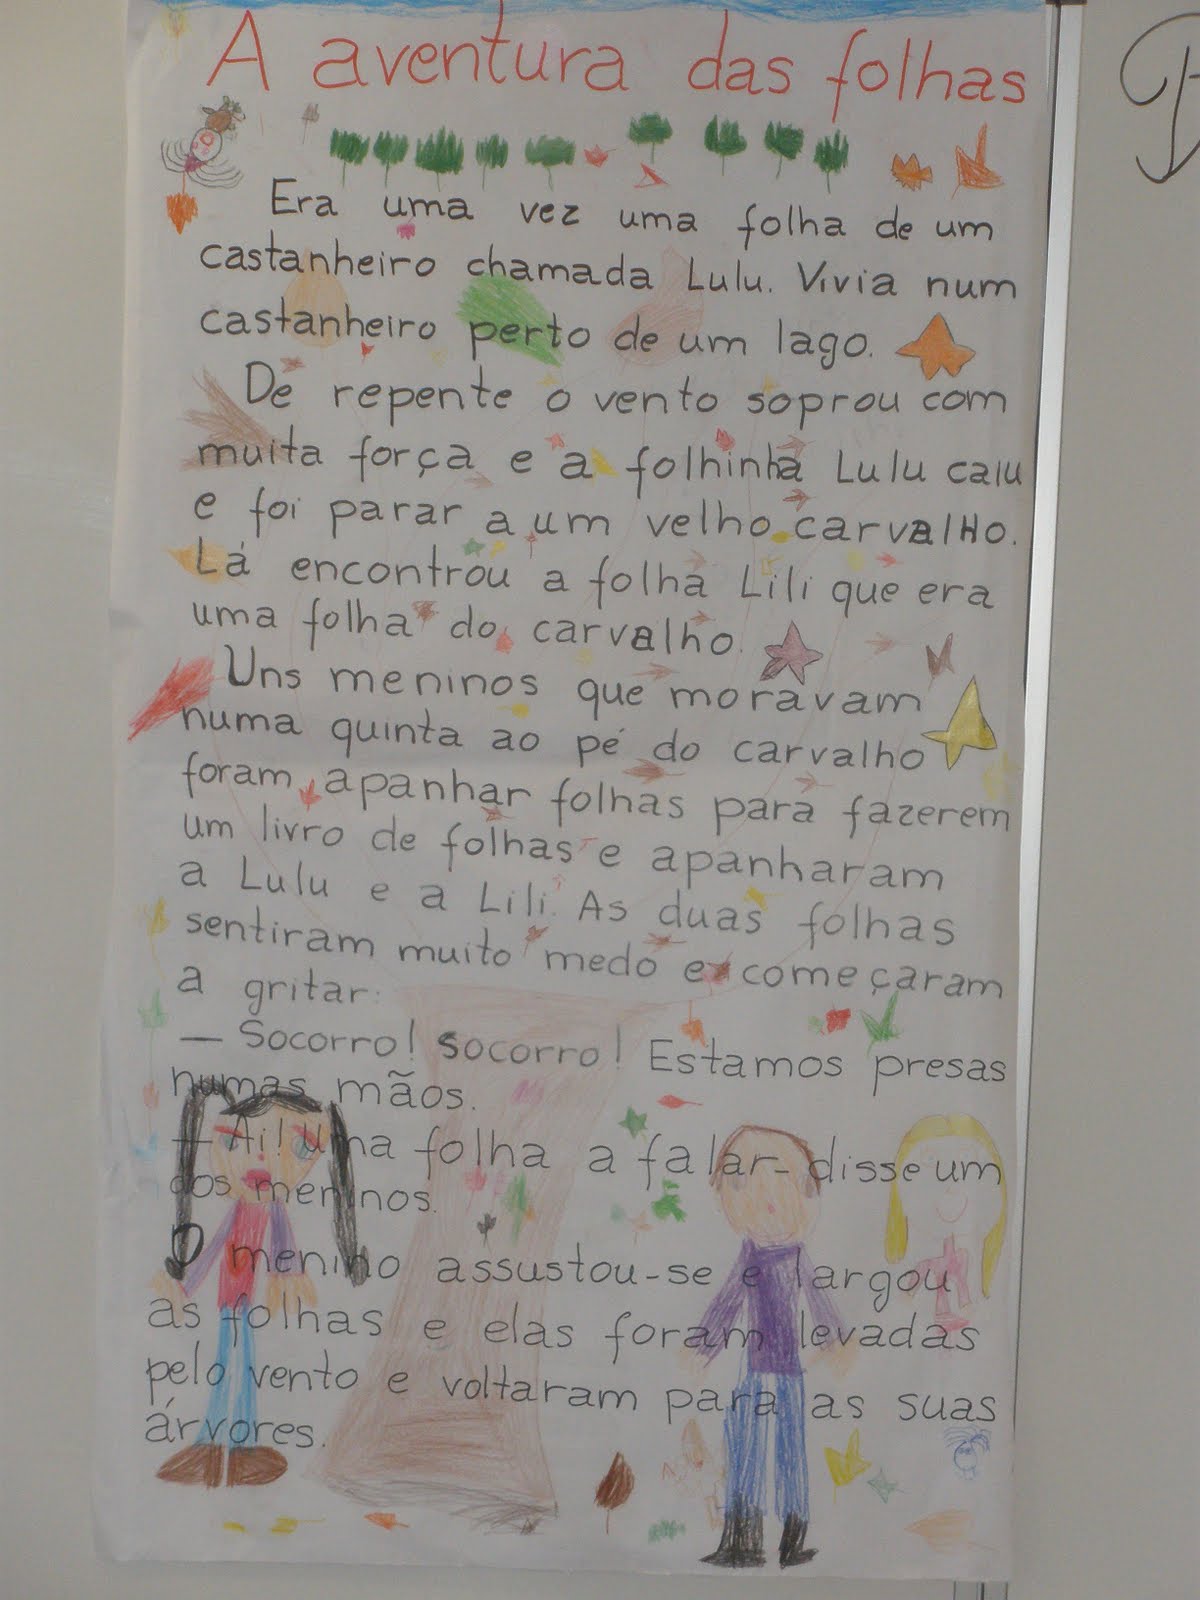 A aventura das folhas
Era uma vez uma folha de um
castanheiro chamada Lulu. Vivia num
castanheiro perto de um lago.
De repente o vento soprou com
muita força e a folhinha Lulu caiu
e foi parar a um velho carvalho.
Lá encontrou a folha Lili que era
uma folha do carvalho.
Uns meninos que moravam
numa quinta ao pé do carvalho
foram apanhar folhas para fazerem
um livro de folhas e apanharam
a Lulu e a Lili. As duas folhas
sentiram muito medo e começaram
a gritar:
— Socorro! socorro! Estamos presas
numas mãos.
— Ai! Uma folha a falar - disse um
dos meninos.
O menino assustou-se e largou
as folhas e elas foram levadas
pelo vento e voltaram para as suas
árvores.